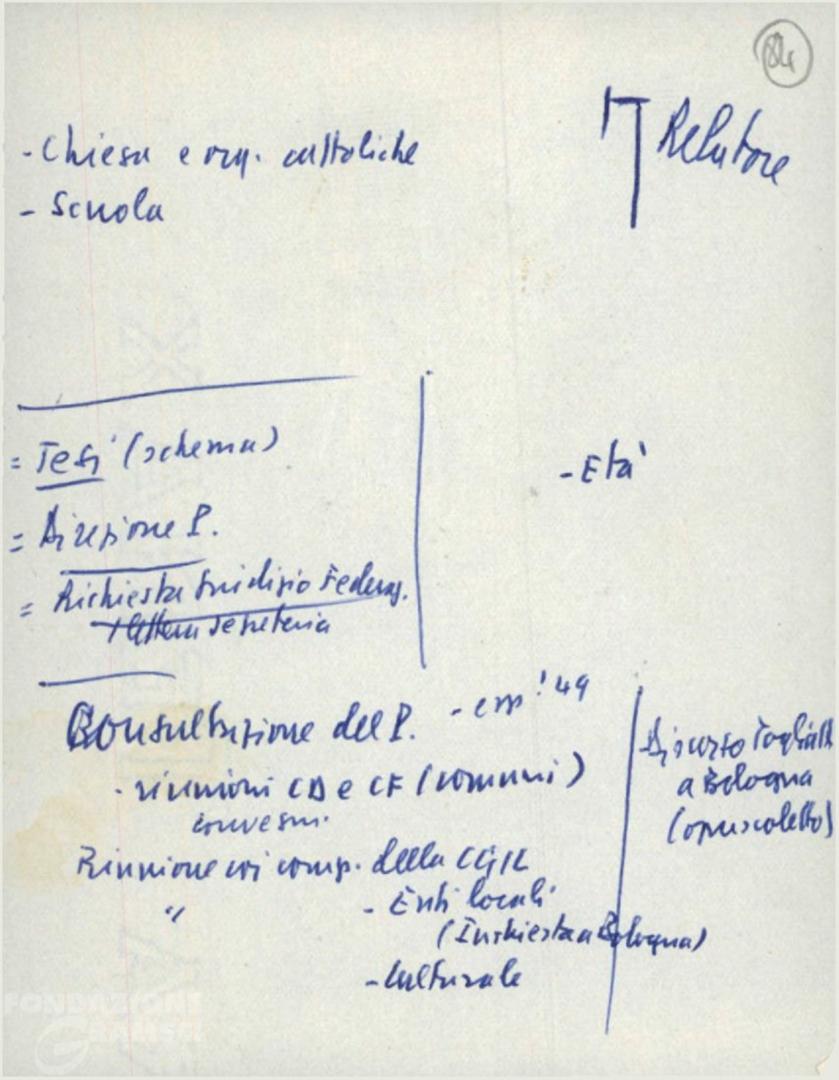 84
- Chiesa e org. cattoliche
- Scuola
Relatore
= Tesi (schema)
= Direzione P.
= Richiesta giudizio Federaz.
+ lettera segreteria
- Età
Consultazione del P. -
'49
- riunioni CD e CF (comuni)
convegni
Riunione coi comp. della CGIL
" - Enti locali
(Inchiesta a Bologna)
- Culturale
Discorso Togliatti
a Bologna
(opuscoletto)
FONDAZIONE
GRAMSCI